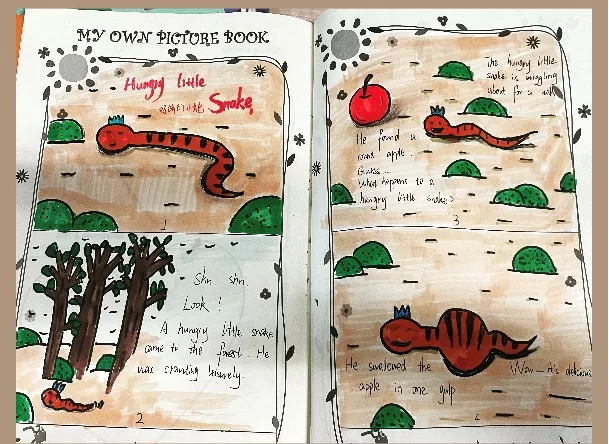 MY OWN PICTURE BOOK
Hungry little
Snake,
1
Shn shn
Look !
A hungry little snake
came to the forest. He
was crawling leisurely.
2
The hungry little
snake is wriggling
about for a walk
He found a
round apple.
Guess...
What happens to a
hungry little snake?
3
He swallowed the
apple in one gulp
Wow— it's delicious
4